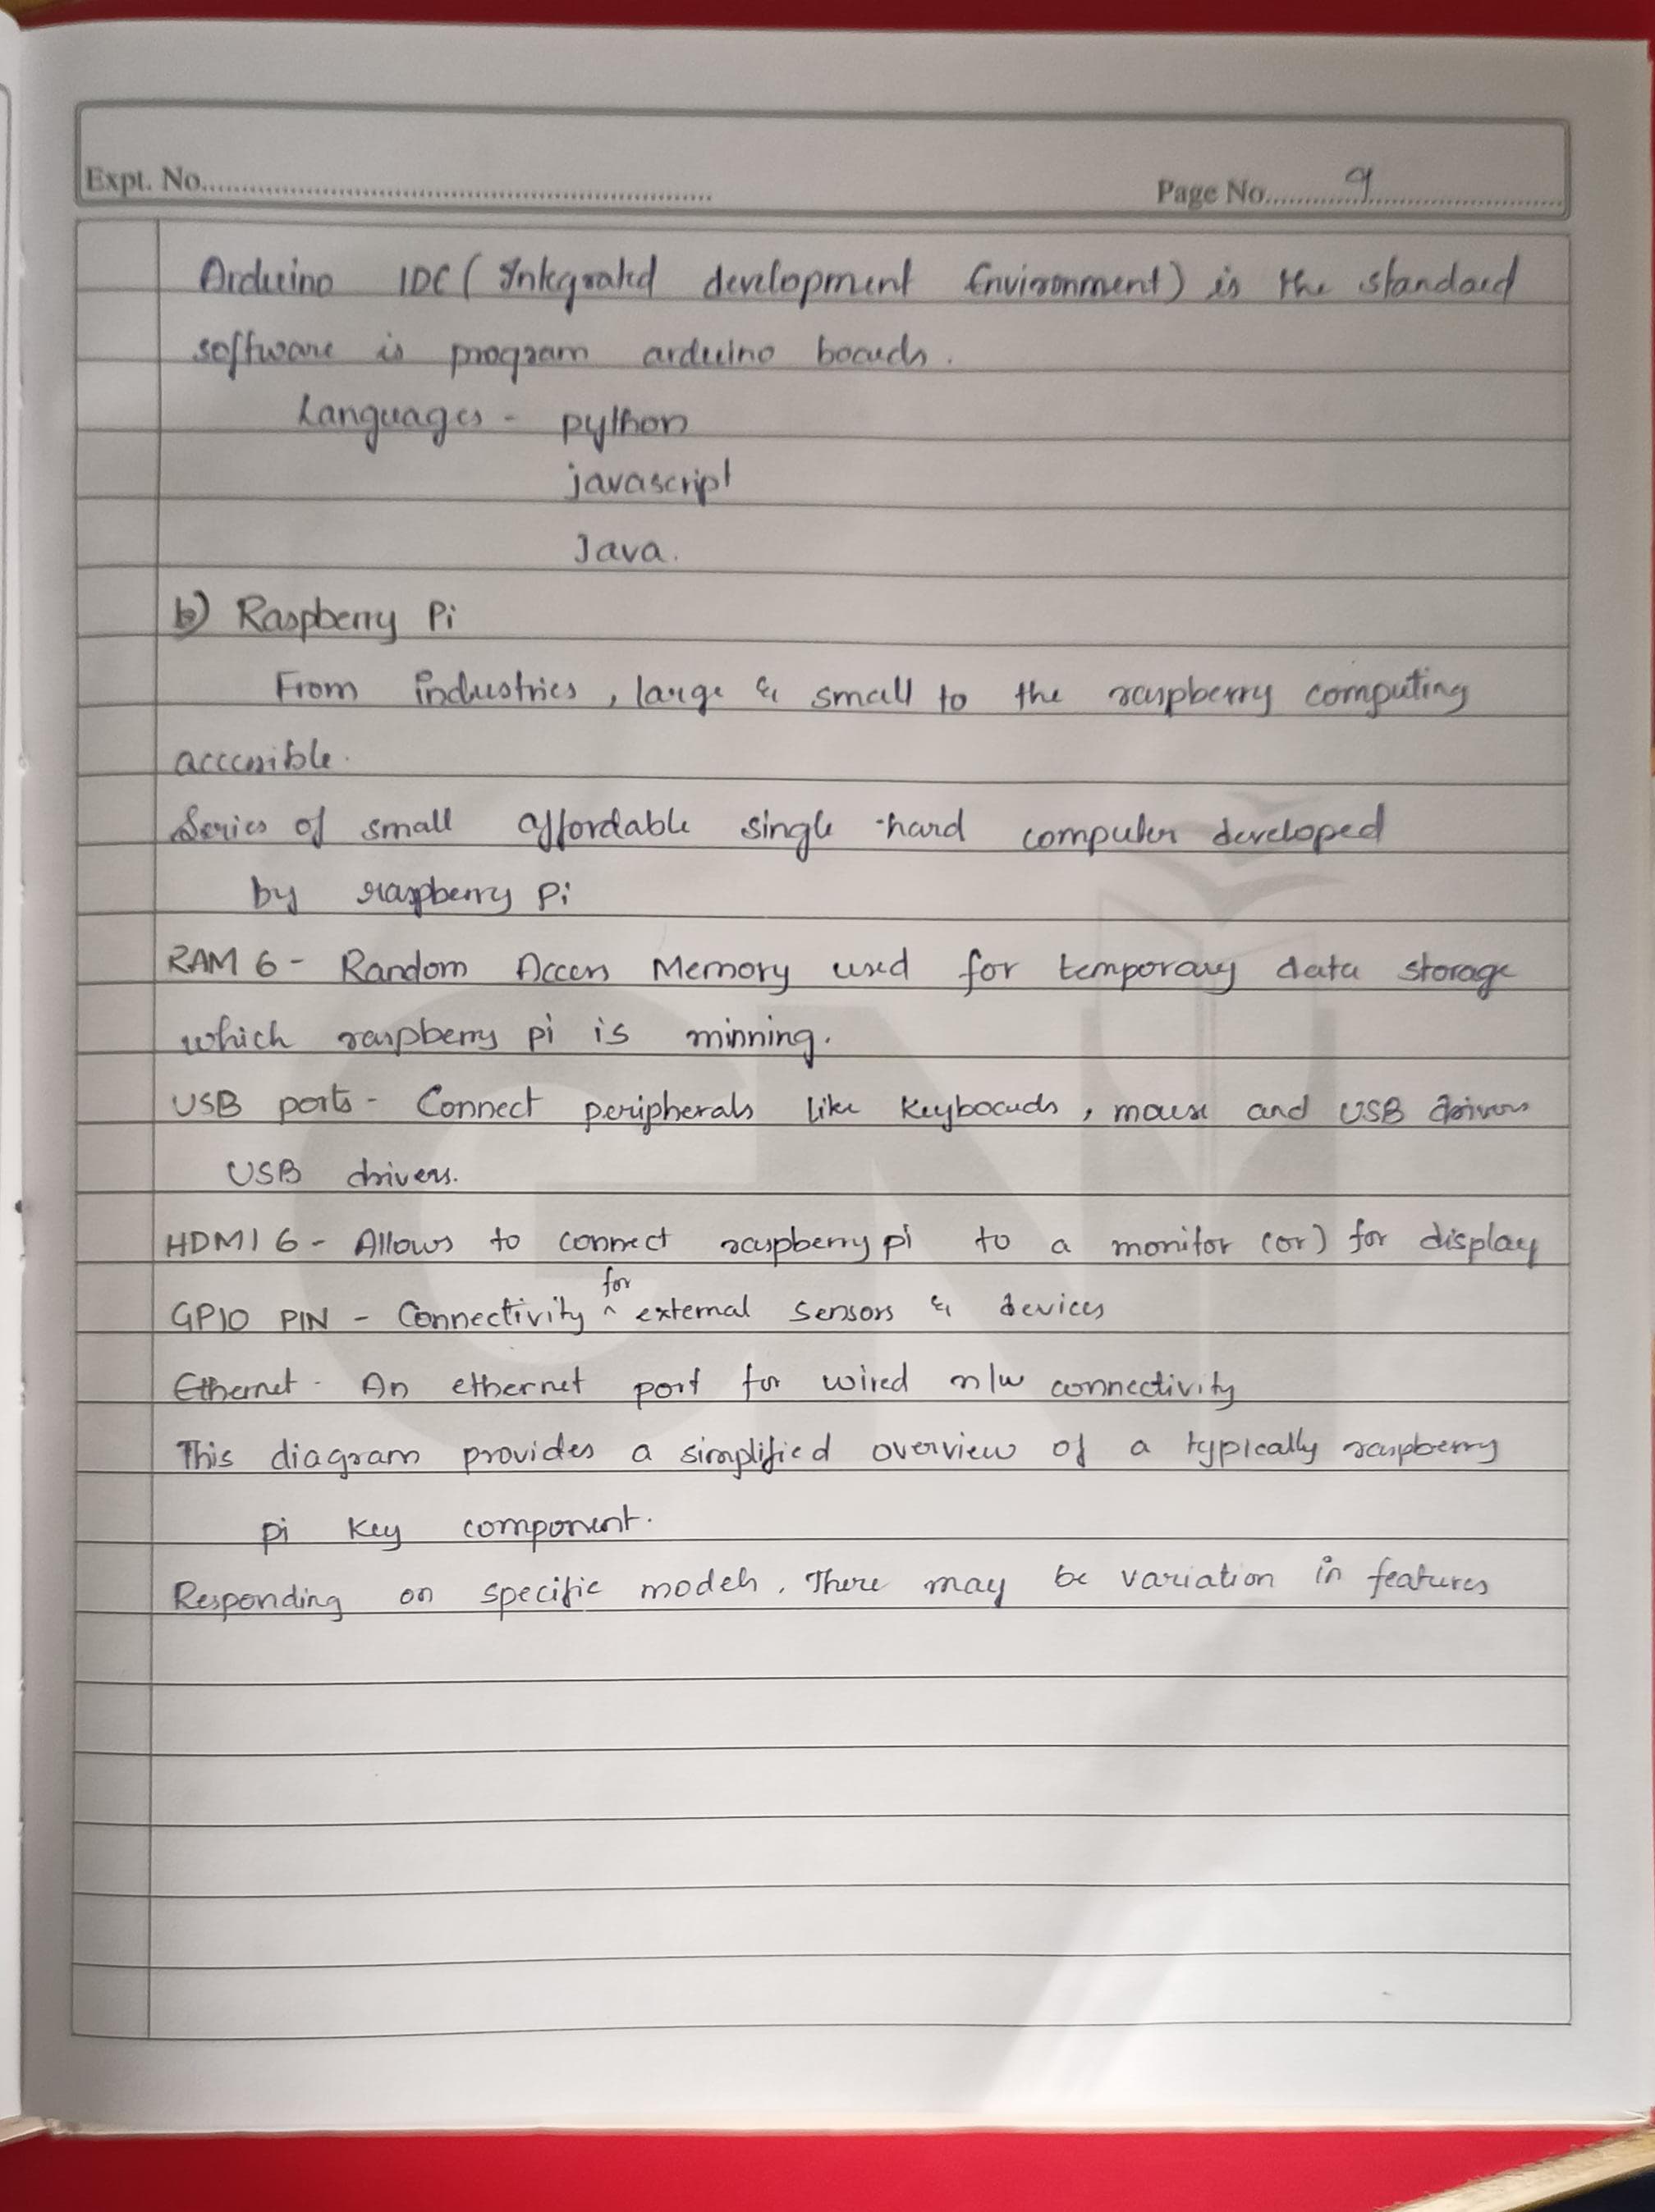 Expt. No.
Page No. 9
Arduino IDC ( Integrated development Environment) is the standard
software is program arduino boards.
Languages - python
javascript
Java.
b) Raspberry Pi
From industries, large & small to the raspberry computing
accessible.
Series of small affordable single hard computer developed
by raspberry Pi
RAM 6 - Random Access Memory used for temporary data storage
which raspberry pi is minning.
USB ports - Connect peripherals like Keyboards, mouse and USB drivers
USB drivers.
HDMI 6 - Allows to connect raspberry pi to a monitor (or) for display
GPIO PIN - Connectivity for external sensors & devices
Ethernet - An ethernet port for wired n/w connectivity
This diagram provides a simplified overview of a typically raspberry
pi key component.
Responding on specific models. There may be variation in features
GNI